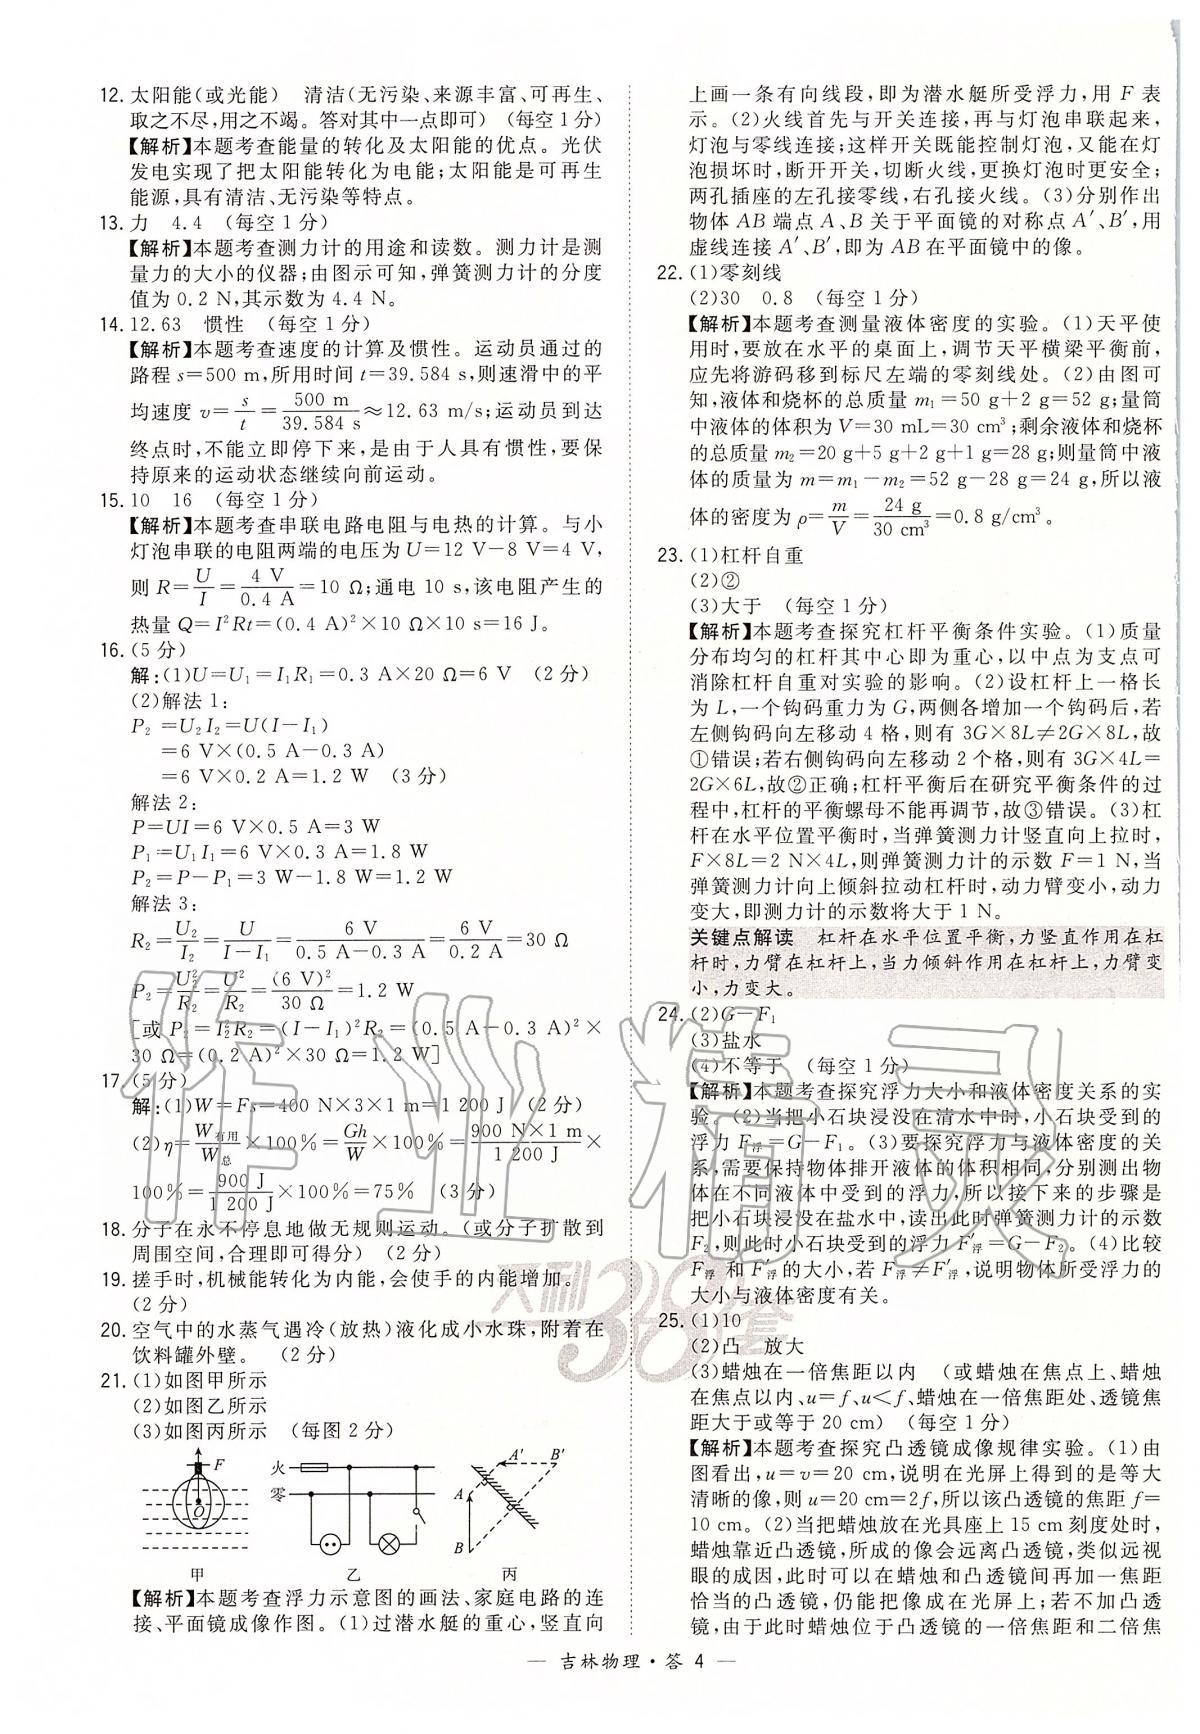 12. 太阳能(或光能)　清洁(无污染、来源丰富、可再生、
取之不尽,用之不竭。答对其中一点即可)　(每空1分)
【解析】本题考查能量的转化及太阳能的优点。光伏
发电实现了把太阳能转化为电能;太阳能是可再生
能源,具有清洁、无污染等特点。
13. 力　4.4　(每空1分)
【解析】本题考查测力计的用途和读数。测力计是测
量力的大小的仪器;由图示可知,弹簧测力计的分度
值为 0.2 N,其示数为 4.4 N。
14. 12.63　惯性　(每空1分)
【解析】本题考查速度的计算及惯性。运动员通过的
路程 s=500 m,所用时间 t=39.584 s,则速滑中的平
均速度 v=s/t=500 m/39.584 s≈12.63 m/s;运动员到达
终点时,不能立即停下来,是由于人具有惯性,要保
持原来的运动状态继续向前运动。
15. 10　16　(每空1分)
【解析】本题考查串联电路电阻与电热的计算。与小
灯泡串联的电阻两端的电压为 U=12 V-8 V=4 V,
则 R=U/I=4 V/0.4 A=10 Ω;通电 10 s,该电阻产生的
热量 Q=I²Rt=(0.4 A)²×10 Ω×10 s=16 J。
16. (5分)
解:(1)U=U₁=I₁R₁=0.3 A×20 Ω=6 V　(2分)
(2)解法1:
P₂=U₂I₂=U(I-I₁)
=6 V×(0.5 A-0.3 A)
=6 V×0.2 A=1.2 W　(3分)
解法2:
P=UI=6 V×0.5 A=3 W
P₁=U₁I₁=6 V×0.3 A=1.8 W
P₂=P-P₁=3 W-1.8 W=1.2 W
解法3:
R₂=U₂/I₂=U/(I-I₁)=6 V/(0.5 A-0.3 A)=6 V/0.2 A=30 Ω
P₂=U₂²/R₂=U²/R₂=(6 V)²/30 Ω=1.2 W
[或 P₂=I₂²R₂=(I-I₁)²R₂=(0.5 A-0.3 A)²×
30 Ω=(0.2 A)²×30 Ω=1.2 W]
17. (5分)
解:(1)W=Fs=400 N×3×1 m=1 200 J　(2分)
(2)η=W有用/W总×100%=Gh/W×100%=900 N×1 m/1 200 J×
100%=900 J/1 200 J×100%=75%　(3分)
18. 分子在永不停息地做无规则运动。(或分子扩散到
周围空间,合理即可得分)　(2分)
19. 搓手时,机械能转化为内能,会使手的内能增加。
(2分)
20. 空气中的水蒸气遇冷(放热)液化成小水珠,附着在
饮料罐外壁。　(2分)
21. (1)如图甲所示
(2)如图乙所示
(3)如图丙所示　(每图2分)
F
O
甲
火
零
乙
A′
B′
A
B
丙
【解析】本题考查浮力示意图的画法、家庭电路的连
接、平面镜成像作图。(1)过潜水艇的重心,竖直向
上画一条有向线段,即为潜水艇所受浮力,用 F 表
示。(2)火线首先与开关连接,再与灯泡串联起来,
灯泡与零线连接;这样开关既能控制灯泡,又能在灯
泡损坏时,断开开关,切断火线,更换灯泡时更安全;
两孔插座的左孔接零线,右孔接火线。(3)分别作出
物体 AB 端点 A、B 关于平面镜的对称点 A′、B′,用
虚线连接 A′、B′,即为 AB 在平面镜中的像。
22. (1)零刻线
(2)30　0.8　(每空1分)
【解析】本题考查测量液体密度的实验。(1)天平使
用时,要放在水平的桌面上,调节天平横梁平衡前,
应先将游码移到标尺左端的零刻线处。(2)由图可
知,液体和烧杯的总质量 m₁=50 g+2 g=52 g;量筒
中液体的体积为 V=30 mL=30 cm³;剩余液体和烧杯
的总质量 m₂=20 g+5 g+2 g+1 g=28 g;则量筒中液
体的质量为 m=m₁-m₂=52 g-28 g=24 g,所以液
体的密度为 ρ=m/V=24 g/30 cm³=0.8 g/cm³。
23. (1)杠杆自重
(2)②
(3)大于　(每空1分)
【解析】本题考查探究杠杆平衡条件实验。(1)质量
分布均匀的杠杆其中心即为重心,以中点为支点可
消除杠杆自重对实验的影响。(2)设杠杆上一格长
为 L,一个钩码重力为 G,两侧各增加一个钩码后,若
左侧钩码向左移动 4 格,则有 3G×8L≠2G×8L,故
①错误;若右侧钩码向左移动 2 个格,则有 3G×4L=
2G×6L,故②正确;杠杆平衡后在研究平衡条件的过
程中,杠杆的平衡螺母不能再调节,故③错误。(3)杠
杆在水平位置平衡时,当弹簧测力计竖直向上拉时,
F×8L=2 N×4L,则弹簧测力计的示数 F=1 N,当
弹簧测力计向上倾斜拉动杠杆时,动力臂变小,动力
变大,即测力计的示数将大于 1 N。
关键点解读　杠杆在水平位置平衡,力竖直作用在杠
杆时,力臂在杠杆上,当力倾斜作用在杠杆上,力臂变
小,力变大。
24. (2)G-F₁
(3)盐水
(4)不等于　(每空1分)
【解析】本题考查探究浮力大小和液体密度关系的实
验。(2)当把小石块浸没在清水中时,小石块受到的
浮力 F浮=G-F₁。(3)要探究浮力与液体密度的关
系,需要保持物体排开液体的体积相同,分别测出物
体在不同液体中受到的浮力,所以接下来的步骤是
把小石块浸没在盐水中,读出此时弹簧测力计的示数
F₂,则此时小石块受到的浮力 F′浮=G-F₂。(4)比较
F浮 和 F′浮 的大小,若 F浮≠F′浮,说明物体所受浮力的
大小与液体密度有关。
25. (1)10
(2)凸　放大
(3)蜡烛在一倍焦距以内　(或蜡烛在焦点上、蜡烛
在焦点以内、u=f、u<f、蜡烛在一倍焦距处、透镜焦
距大于或等于 20 cm)　(每空1分)
【解析】本题考查探究凸透镜成像规律实验。(1)由
图看出,u=v=20 cm,说明在光屏上得到的是等大
清晰的像,则 u=20 cm=2f,所以该凸透镜的焦距 f=
10 cm。(2)当把蜡烛放在光具座上 15 cm 刻度处时,
蜡烛靠近凸透镜,所成的像会远离凸透镜,类似远视
眼的成因,此时可以在蜡烛和凸透镜间再加一焦距
恰当的凸透镜,仍能把像成在光屏上;若不加凸透
镜,由于此时蜡烛位于凸透镜的一倍焦距和二倍焦
— 吉林物理·答 4 —
作业精灵
天利38套